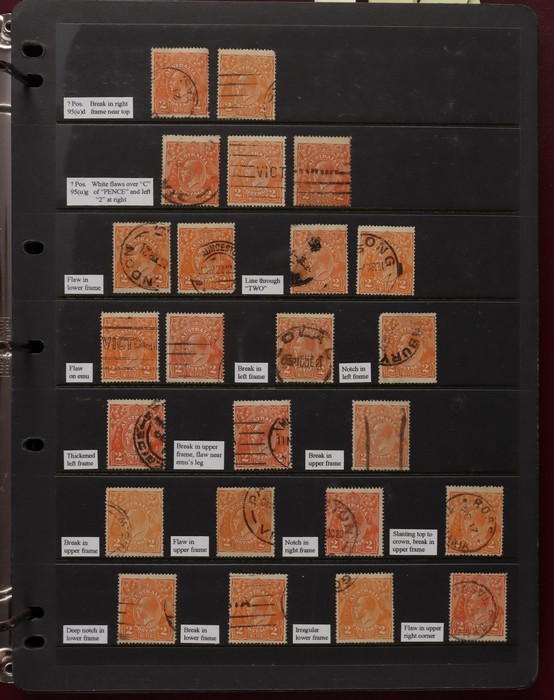 ? Pos. Break in right
95(u)d frame near top
? Pos. White flaws over "C"
95(u)g of "PENCE" and left
"2" at right
VICT
Flaw in
lower frame
Line through
"TWO"
VICTOR
Flaw
on emu
Break in
left frame
Notch in
left frame
Thickened
left frame
Break in upper
frame, flaw near
emu's leg
Break in
upper frame
Break in
upper frame
Flaw in
upper frame
Notch in
right frame
Slanting top to
crown, break in
upper frame
Deep notch in
lower frame
Break in
lower frame
Irregular
lower frame
Flaw in upper
right corner